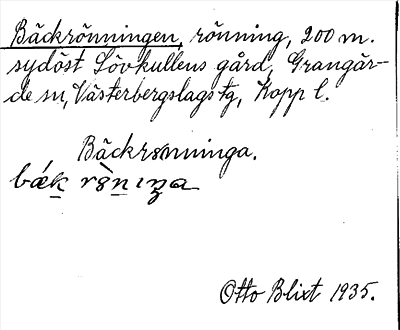 Bäckrönningen, rönning, 200 m.
sydöst Lövkullens gård, Grangär-
de sn, Västerbergslags tg, Kopp l.
Bäckrønninga.
Otto Blixt 1935.